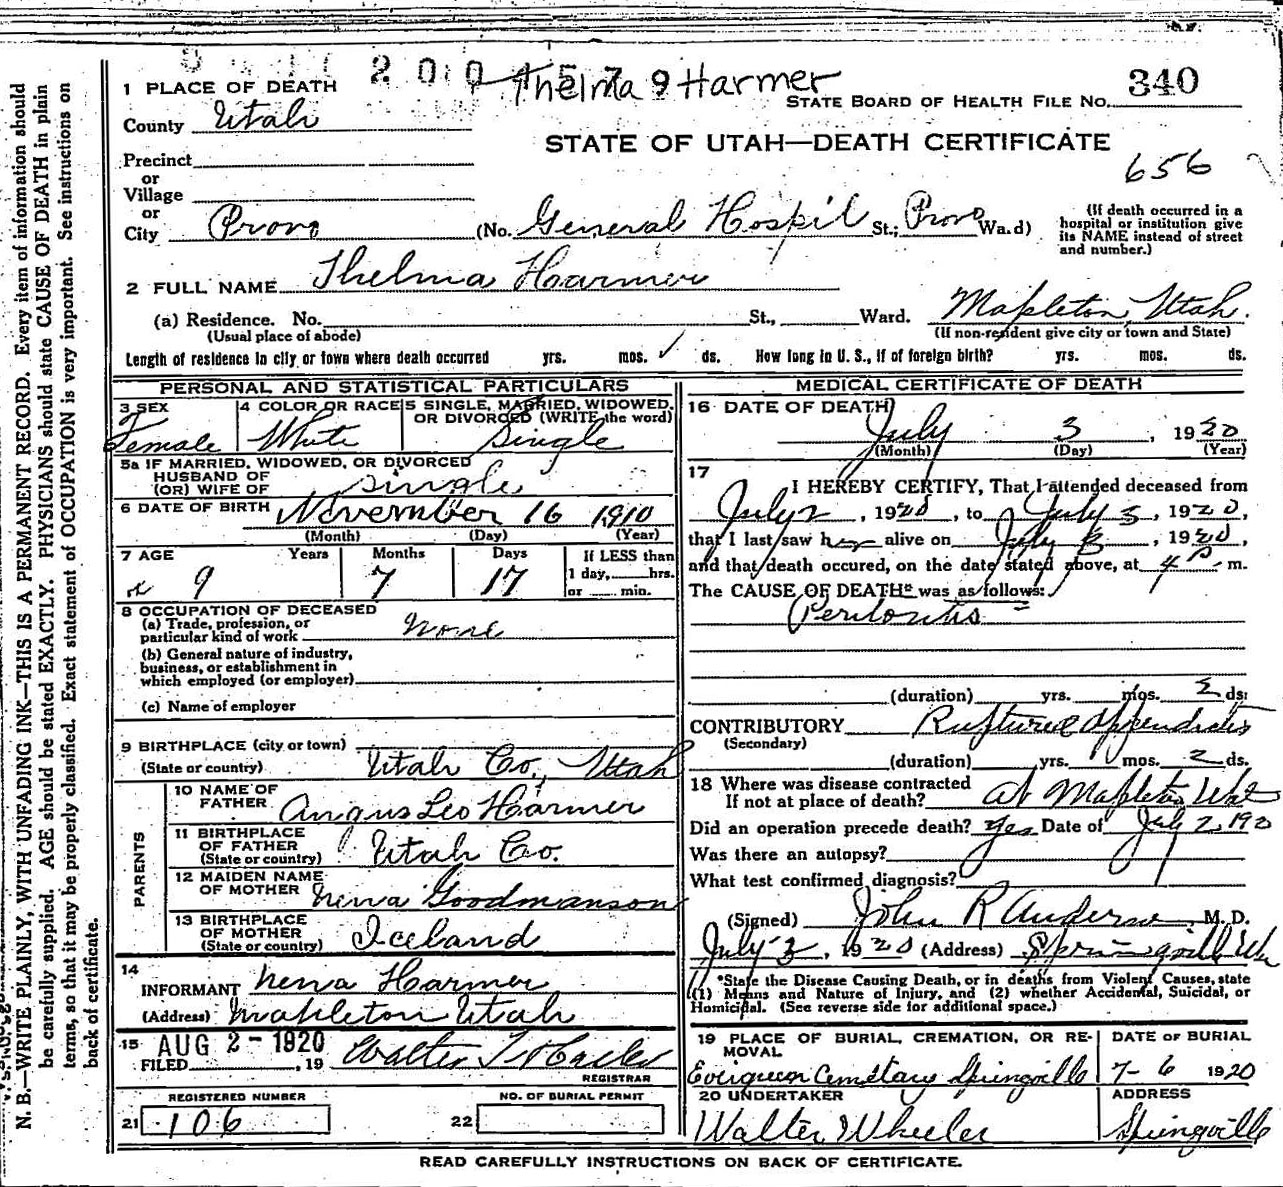 Thelma Harmer
1 PLACE OF DEATH
STATE BOARD OF HEALTH FILE No. 340
County Utah
STATE OF UTAH—DEATH CERTIFICATE
656
Precinct
or
Village
or
City Provo (No. General Hospil St.; Provo Wa.d)
(If death occurred in a
hospital or institution give
its NAME instead of street
and number.)
2 FULL NAME Thelma Harmer
(a) Residence. No. St., Ward. Mapleton, Utah.
(Usual place of abode) (If non-resident give city or town and State)
Length of residence in city or town where death occurred yrs. mos. ds. How long in U. S., if of foreign birth? yrs. mos. ds.
PERSONAL AND STATISTICAL PARTICULARS
3 SEX Female
4 COLOR OR RACE White
5 SINGLE, MARRIED, WIDOWED,
OR DIVORCED (WRITE the word)
Single
5a IF MARRIED, WIDOWED, OR DIVORCED
HUSBAND OF
(OR) WIFE OF Single
6 DATE OF BIRTH November 16 1910
(Month) (Day) (Year)
7 AGE Years Months Days If LESS than
9 7 17 1 day, hrs.
or min.
8 OCCUPATION OF DECEASED
(a) Trade, profession, or
particular kind of work None
(b) General nature of industry,
business, or establishment in
which employed (or employer)
(c) Name of employer
9 BIRTHPLACE (city or town)
(State or country) Utah Co., Utah
PARENTS
10 NAME OF
FATHER Angus Leo Harmer
11 BIRTHPLACE
OF FATHER
(State or country) Utah Co.
12 MAIDEN NAME
OF MOTHER Nena Goodmanson
13 BIRTHPLACE
OF MOTHER
(State or country) Iceland
14
INFORMANT Nena Harmer
(Address) Mapleton Utah
15 AUG 2 - 1920
FILED , 19 Walter T
REGISTRAR
REGISTERED NUMBER NO. OF BURIAL PERMIT
21 106 22
MEDICAL CERTIFICATE OF DEATH
16 DATE OF DEATH
July 3, 1920
(Month) (Day) (Year)
17
I HEREBY CERTIFY, That I attended deceased from
July 2, 1920, to July 3, 1920,
that I last saw her alive on July 3, 1920,
and that death occured, on the date stated above, at 4 P. m.
The CAUSE OF DEATH* was as follows:
Peritonitis
(duration) yrs. mos. 2 ds.
CONTRIBUTORY Ruptured Appendicitis
(Secondary)
(duration) yrs. mos. 2 ds.
18 Where was disease contracted
If not at place of death? at Mapleton Utah
Did an operation precede death? Yes Date of July 2, 1920
Was there an autopsy?
What test confirmed diagnosis?
(Signed) John R Anderson M. D.
July 3, 1920 (Address) Springville Utah
*State the Disease Causing Death, or in deaths from Violent Causes, state
(1) Means and Nature of Injury, and (2) whether Accidental, Suicidal, or
Homicidal. (See reverse side for additional space.)
19 PLACE OF BURIAL, CREMATION, OR RE-
MOVAL
Evergreen Cemetary Springville
DATE OF BURIAL
7-6 1920
20 UNDERTAKER
Walter Wheeler
ADDRESS
Springville
READ CAREFULLY INSTRUCTIONS ON BACK OF CERTIFICATE.
N. B.—WRITE PLAINLY, WITH UNFADING INK—THIS IS A PERMANENT RECORD. Every item of information should
be carefully supplied. AGE should be stated EXACTLY. PHYSICIANS should state CAUSE OF DEATH in plain
terms, so that it may be properly classified. Exact statement of OCCUPATION is very important. See instructions on
back of certificate.